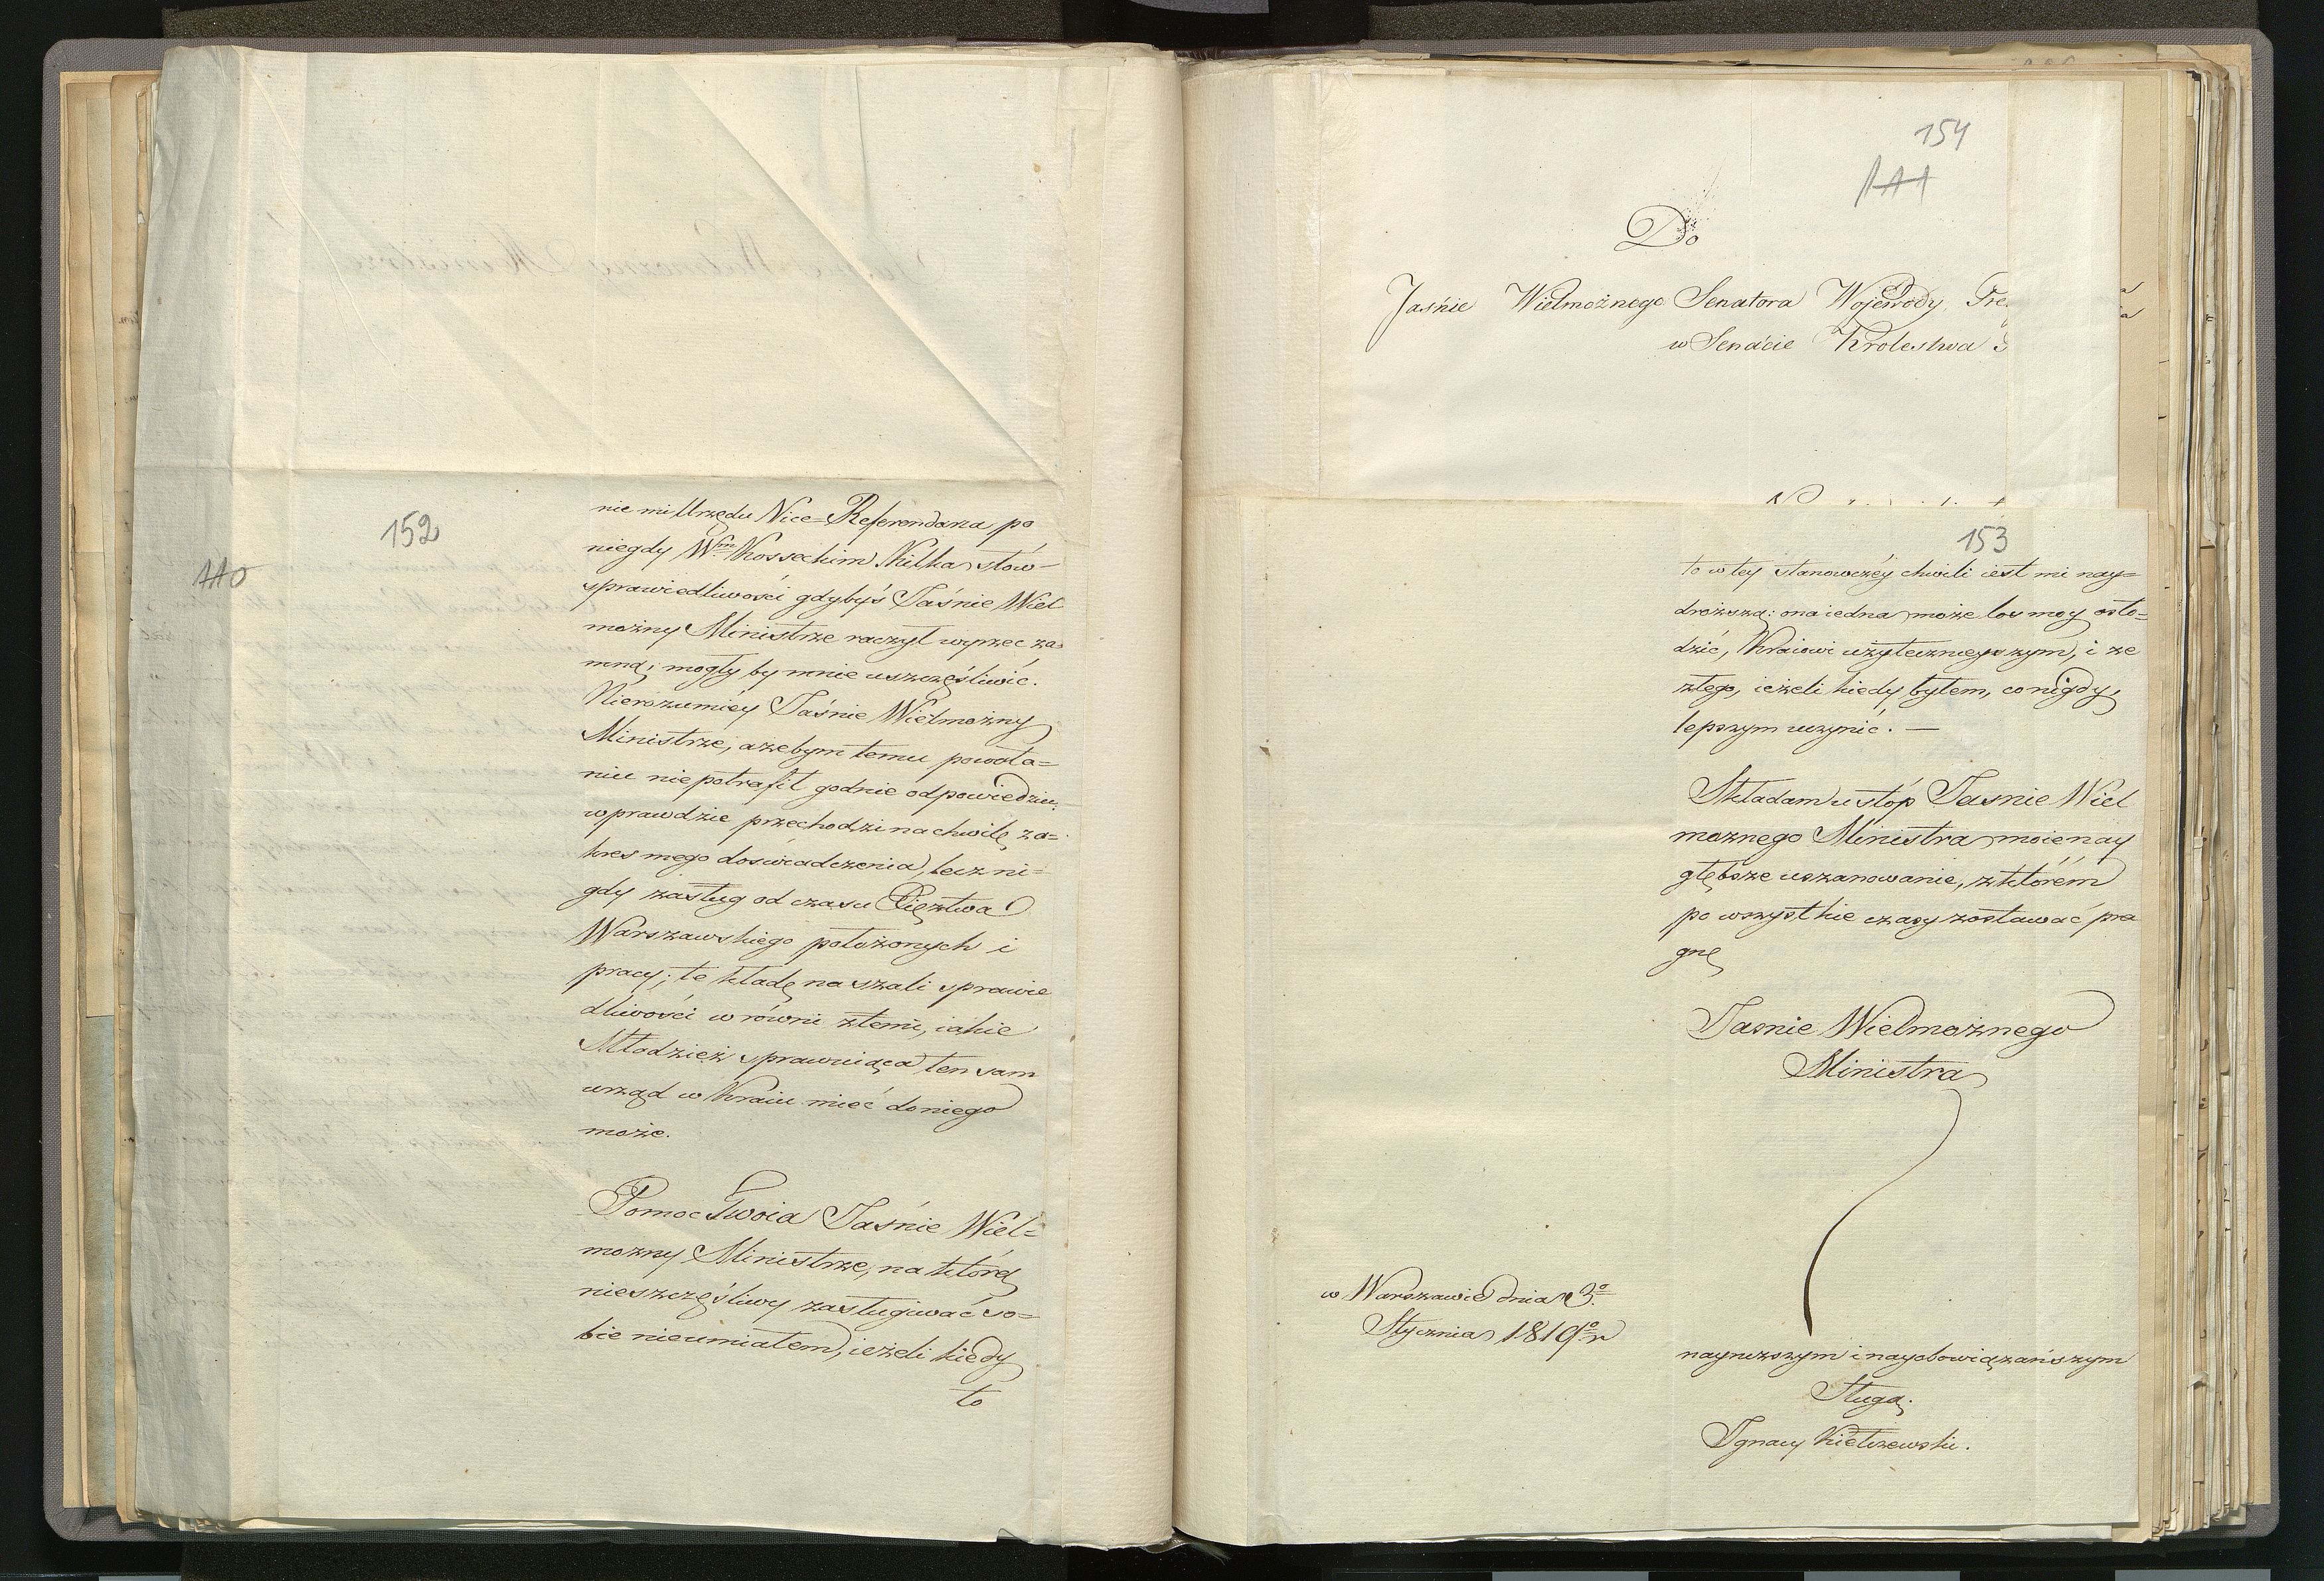 152
110
nie mi Urzędu Vice=Referendarza po
niegdy W<sup>m</sup> Kosseckim Kilka słów
sprawiedliwości gdybyś Jaśnie Wiel
możny Ministrze raczył wyrzec za
mną; mogły by mnie uszczęśliwić.
Nierozumiéy Jaśnie Wielmożny
Ministrze, ażebym temu powoła=
niu niepotrafił godnie odpowiedzieć.
wprawdzie przechodzi na chwilę za=
kres mego doświadczenia, lecz ni=
gdy zasług od czasu Xięztwa
Warszawskiego położonych i
pracy; te kładę na szali sprawie
dliwości w równi z temi, iakie
Młodzież sprawuiąca ten sam
urząd w Kraiu mieć do niego
może.
Pomoc Twoia Jaśnie Wiel=
możny Ministrze, na którą
nieszczęśliwy zasługiwać so=
bie nieumiałem, ieżeli kiedy
to
154
111
Do
Jaśnie Wielmożnego Senatora Wojewody, Pre
w Senacie Krolestwa
153
to w tey stanowczéy chwili iest mi nay=
droższą: ona iedna może los moy osło=
dzić, Kraiowi użytecznieyszym, i ze
złego, ieżeli kiedy byłem, co nigdy,
lepszym uczynić. —
Składam u stóp Jasnie Wiel
możnego Ministra moie nay
głębsze uszanowanie, z którém
po wszystkie czasy zostawać pra
gnę
Jasnie Wielmożnego
Ministra
w Warszawie dnia 3º
Stycznia 1819º r
nayniższym i nayobowiązańszym
Sługą.
Ignacy Kiełczewski.